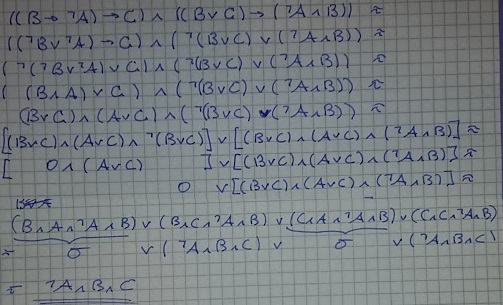 ((B→⌝A)→C) ∧ ((B∨C)→(⌝A∧B)) ≈
((⌝B∨⌝A)→C) ∧ (⌝(B∨C) ∨ (⌝A∧B)) ≈
(⌝(⌝B∨⌝A) ∨ C) ∧ (⌝(B∨C) ∨ (⌝A∧B)) ≈
((B∧A) ∨ C) ∧ (⌝(B∨C) ∨ (⌝A∧B)) ≈
(B∨C) ∧ (A∨C) ∧ (⌝(B∨C) ∨ (⌝A∧B)) ≈
[(B∨C)∧(A∨C)∧⌝(B∨C)] ∨ [(B∨C)∧(A∨C)∧(⌝A∧B)] ≈
[ 0 ∧ (A∨C) ] ∨ [(B∨C)∧(A∨C)∧(⌝A∧B)] ≈
0 ∨ [(B∨C)∧(A∨C)∧(⌝A∧B)] ≈
(B∧A∧⌝A∧B) ∨ (B∧C∧⌝A∧B) ∨ (C∧A∧⌝A∧B) ∨ (C∧C∧⌝A∧B)
≈ 0 ∨ (⌝A∧B∧C) ∨ 0 ∨ (⌝A∧B∧C)
= ⌝A∧B∧C